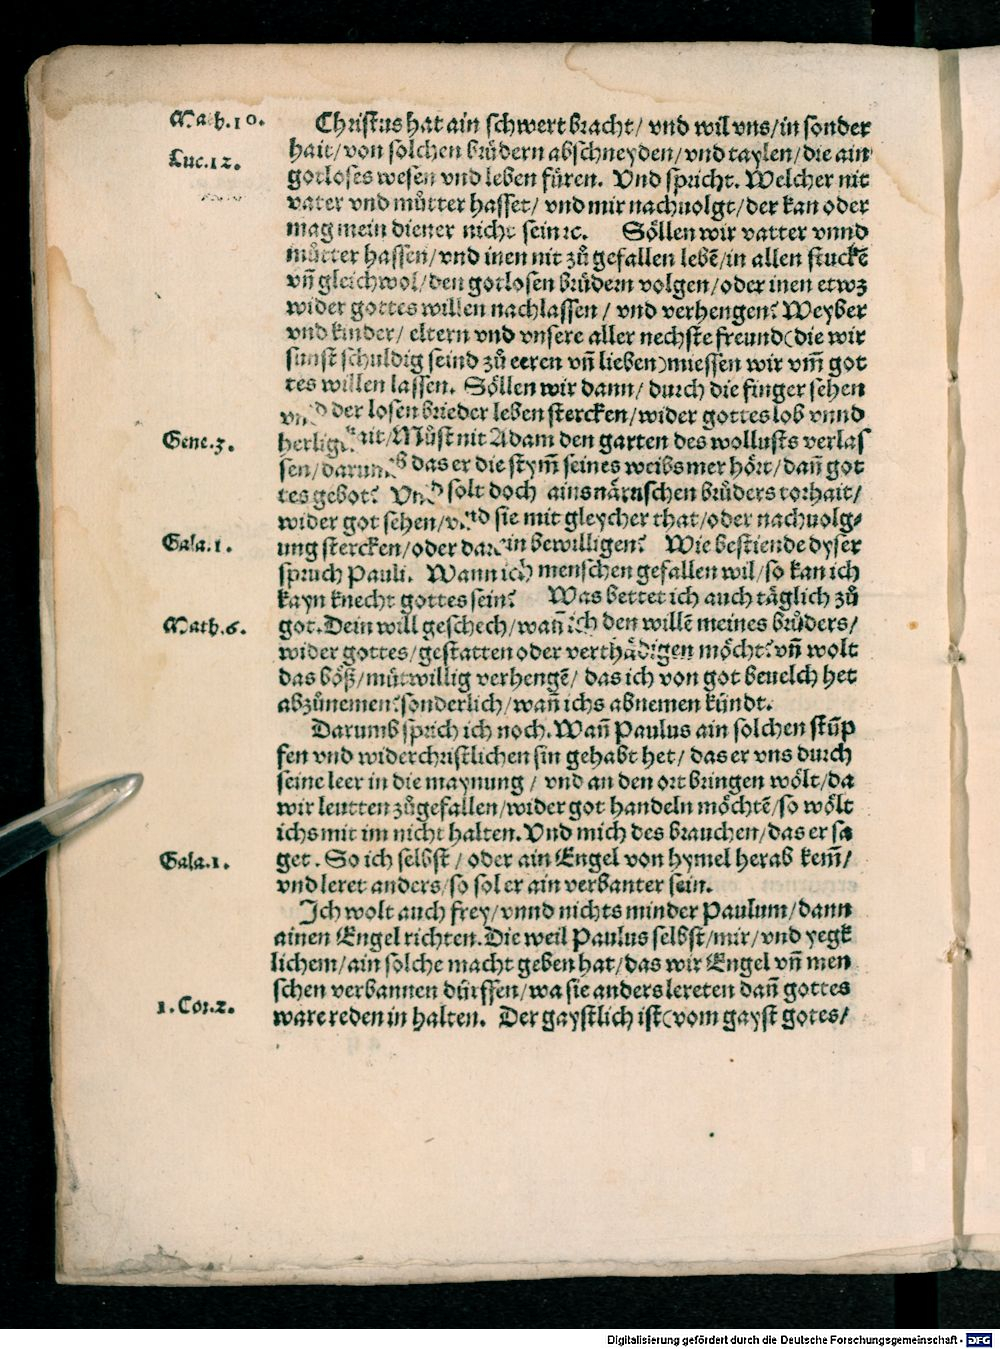 Math.10.
Christus hat ain schwert bracht/ vnd wil vns/in sonder
hait/von solchen brůdern abschneyden/vnd taylen/die ain
Luc.12.
gotloses wesen vnd leben füren. Vnd spricht. Welcher nit
vater vnd můtter hasset/ vnd mir nachuolgt/der kan oder
mag mein diener nicht sein ꝛc. Söllen wir vatter vnnd
můtter hassen/vnd inen nit zů gefallen lebē/in allen stuckē
vn̄ gleichwol/den gotlosen brůdern volgen/oder inen etwz
wider gottes willen nachlassen/ vnd verhengen? Weyber
vnd kinder/ eltern vnd vnsere aller nechste freund(die wir
sunst schuldig seind zů eeren vn̄ lieben)muessen wir vm̄ got
tes willen lassen. Söllen wir dann/ durch die finger sehen
vnd der losen brieder leben stercken/wider gottes lob vnnd
Gene.3.
herligkait/Můst nit Adam den garten des wollusts verlas
sen/darumb das er die stym̄ seines weibs mer hört/dan̄ got
tes gebot? Vnd solt doch ains närrischen brůders torhait/
wider got sehen/vnd sie mit gleycher that/oder nachuolg-
Gala.1.
ung stercken/oder darein bewilligen? Wie bestiende dyser
spruch Pauli. Wann ich menschen gefallen wil/so kan ich
kayn knecht gottes sein? Was bettet ich auch täglich zů
Math.6.
got.Dein will geschech/wan̄ ich den willē meines brůders/
wider gottes/gestatten oder verthädigen möcht?vn̄ wolt
das böß/můtwillig verhengē/ das ich von got beuelch het
abzůnemen?sonderlich/wan̄ ichs abnemen kündt.
Darumb sprich ich noch.Wan̄ Paulus ain solchen stůp
fen vnd widerchristlichen sin gehabt het/ das er vns durch
seine leer in die maynung/ vnd an den ort bringen wölt/da
wir leutten zůgefallen/wider got handeln möchtē/so wölt
ichs mit im nicht halten.Vnd mich des brauchen/das er sa
Gala.1.
get. So ich selbst/ oder ain Engel von hymel herab kem̄/
vnd leret anders/so sol er ain verbanter sein.
Ich wolt auch frey/vnnd nichts minder Paulum/dann
ainen Engel richten.Die weil Paulus selbst/mir/vnd yegk
lichem/ain solche macht geben hat/das wir Engel vn̄ men
schen verbannen dürffen/wa sie anders lereten dan̄ gottes
1.Cor.2.
ware reden in halten. Der gaystlich ist(vom gayst gotes/
Digitalisierung gefördert durch die Deutsche Forschungsgemeinschaft - DFG